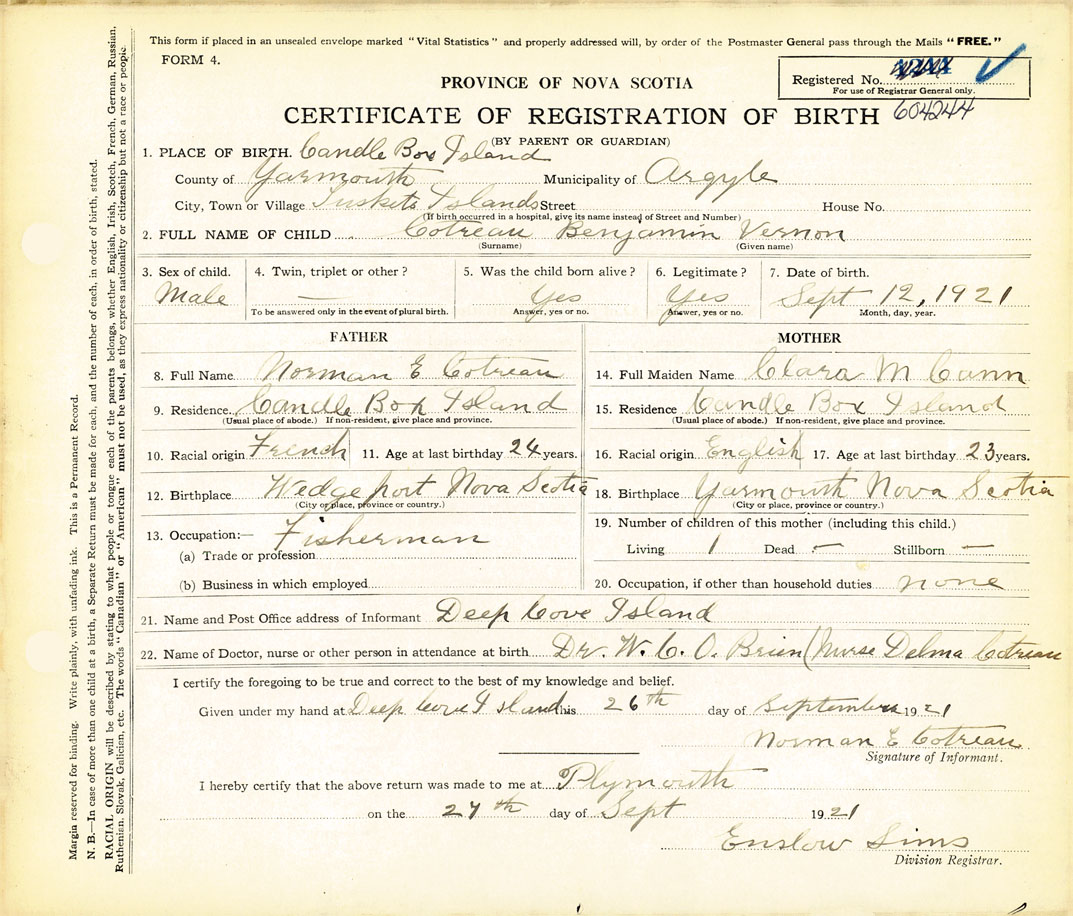 This form if placed in an unsealed envelope marked "Vital Statistics" and properly addressed will, by order of the Postmaster General pass through the Mails "FREE."
FORM 4.
PROVINCE OF NOVA SCOTIA
Registered No.
For use of Registrar General only.
CERTIFICATE OF REGISTRATION OF BIRTH 604244
(BY PARENT OR GUARDIAN)
1. PLACE OF BIRTH. Candle Box Island
County of Yarmouth Municipality of Argyle
City, Town or Village Tuskets Islands Street House No.
(If birth occurred in a hospital, give its name instead of Street and Number)
2. FULL NAME OF CHILD Cotreau Benjamin Vernon
(Surname) (Given name)
3. Sex of child. 4. Twin, triplet or other? 5. Was the child born alive? 6. Legitimate? 7. Date of birth.
Male — Yes Yes Sept 12, 1921
To be answered only in the event of plural birth. Answer, yes or no. Answer, yes or no. Month, day, year.
FATHER MOTHER
8. Full Name Norman E Cotreau 14. Full Maiden Name Clara M Cann
9. Residence Candle Box Island 15. Residence Candle Box Island
(Usual place of abode.) If non-resident, give place and province. (Usual place of abode.) If non-resident, give place and province.
10. Racial origin French 11. Age at last birthday 24 years. 16. Racial origin English 17. Age at last birthday 23 years.
12. Birthplace Wedgeport Nova Scotia 18. Birthplace Yarmouth Nova Scotia
(City or place, province or country.) (City or place, province or country.)
13. Occupation:— Fisherman 19. Number of children of this mother (including this child.)
(a) Trade or profession Living 1 Dead — Stillborn —
(b) Business in which employed 20. Occupation, if other than household duties none
21. Name and Post Office address of Informant Deep Cove Island
22. Name of Doctor, nurse or other person in attendance at birth Dr. W. C. O. Brien (Nurse Delma Cotreau
I certify the foregoing to be true and correct to the best of my knowledge and belief.
Given under my hand at Deep Cove Island this 26th day of September 1921
Norman E Cotreau
Signature of Informant.
I hereby certify that the above return was made to me at Plymouth
on the 27th day of Sept 1921
Enslow Sims
Division Registrar.
Margin reserved for binding. Write plainly, with unfading ink. This is a Permanent Record.
N. B.—In case of more than one child at a birth, a Separate Return must be made for each, and the number of each, in order of birth, stated.
RACIAL ORIGIN will be described by stating to what people or tongue each of the parents belongs, whether English, Irish, Scotch, French, German, Russian,
Ruthenian, Slovak, Galician, etc. The words "Canadian" or "American" must not be used, as they express nationality or citizenship but not a race or people.